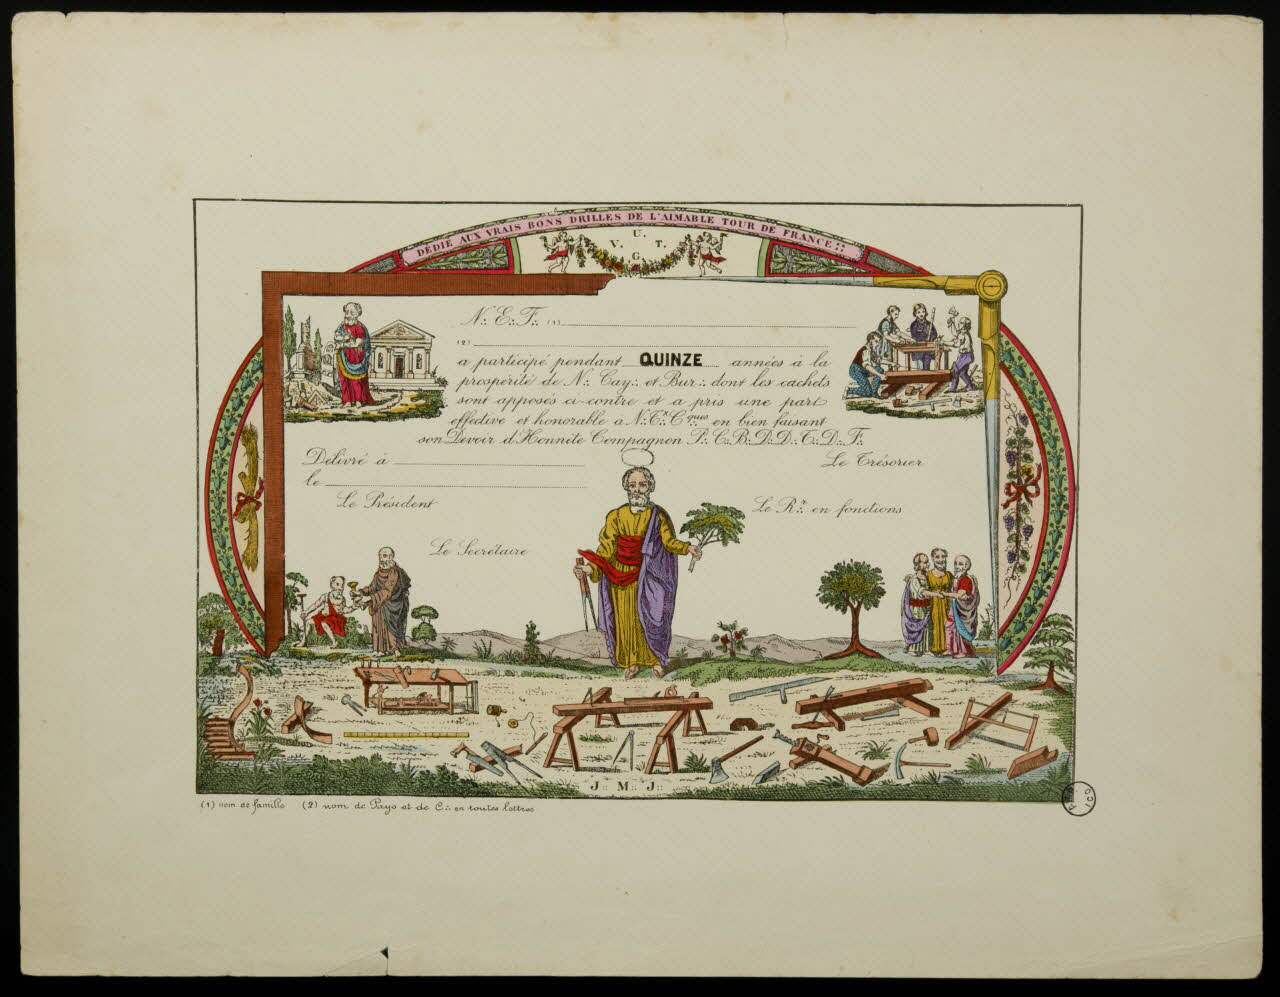 DÉDIÉ AUX VRAIS BONS DRILLES DE L'AIMABLE TOUR DE FRANCE ::
U.
V. T.
G.
N∴ E∴ F∴ (1)
(2)
a participé pendant QUINZE années à la
prospérité de N∴ Cay∴ et Bur∴ dont les cachets
sont apposés ci-contre et a pris une part
effective et honorable a N∴ Tx Cques en bien faisant
son Devoir d'Honnête Compagnon P∴ C∴ B∴ D∴ D∴ T∴ D∴ F∴
Délivré à
le
Le Trésorier
Le Président
Le R∴ en fonctions
Le Secrétaire
J:: M:: J::
(1) nom de famille (2) nom de Pays et de C∴ en toutes lettres